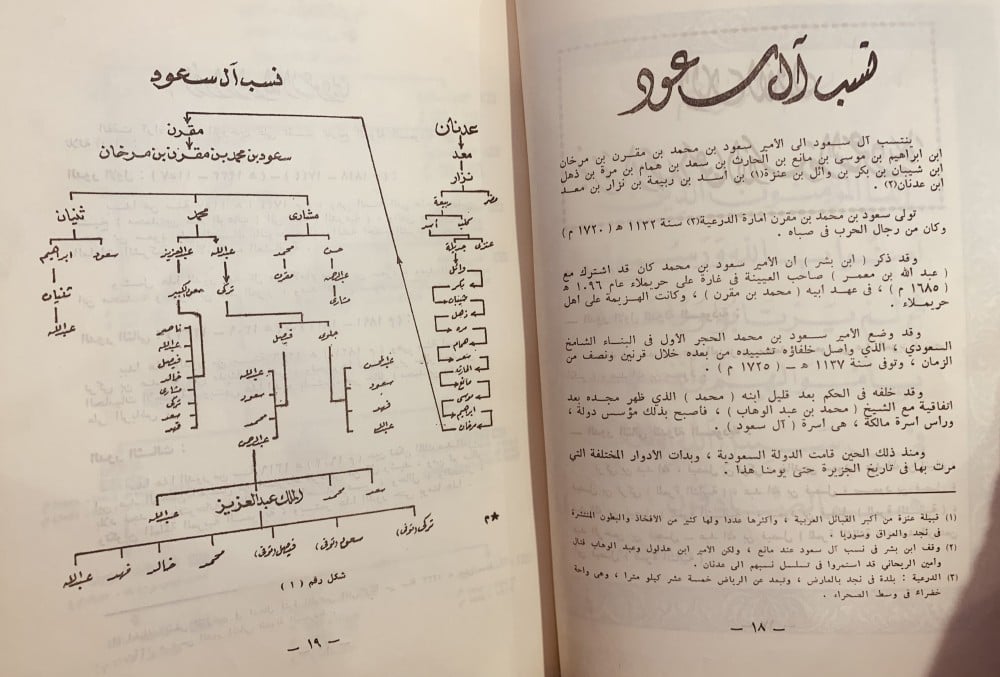 نسب آل سعود
ينتسب آل سعود الى الأمير سعود بن محمد بن مقرن بن مرخان
ابن ابراهيم بن موسى بن مانع بن الحارث بن سعد بن همام بن مرة بن ذهل
ابن شيبان بن بكر بن وائل بن عنزة(١) بن أسد بن ربيعة بن نزار بن معد
ابن عدنان(٢) .
تولى سعود بن محمد بن مقرن امارة الدرعية(٣) سنة ١١٣٢ هـ ( ١٧٢٠ م )
وكان من رجال الحرب فى صباه .
وقد ذكر ( ابن بشر ) أن الأمير سعود بن محمد كان قد اشترك مع
( عبد الله بن معمر ) صاحب العيينة فى غارة على حريملاء عام ١٠٩٦ هـ
( ١٦٨٥ م ) ، فى عهد ابيه ( محمد بن مقرن ) ، وكانت الهزيمة على أهل
حريملاء .
وقد وضع الأمير سعود بن محمد الحجر الأول فى البناء الشامخ
السعودي ، الذي واصل خلفاؤه تشييده من بعده خلال قرنين ونصف من
الزمان ، وتوفى سنة ١١٣٧ هـ – ( ١٧٢٥ م ) .
وقد خلفه فى الحكم بعد قليل ابنه ( محمد ) الذي ظهر مجده بعد
اتفاقية مع الشيخ ( محمد بن عبد الوهاب ) ، فأصبح بذلك مؤسس دولة ،
ورأس أسرة مالكة ، هى أسرة ( آل سعود ) .
ومنذ ذلك الحين قامت الدولة السعودية ، وبدأت الأدوار المختلفة التي
مرت بها فى تاريخ الجزيرة حتى يومنا هذا .
(١) قبيلة عنزة من أكبر القبائل العربية ، وأكثرها عددا ولها كثير من الأفخاذ والبطون المنتشرة
فى نجد والعراق وسوريا .
(٢) وقف ابن بشر فى نسب آل سعود عند مانع ، ولكن الأمير ابن هذلول وعبد الوهاب فتال
وأمين الريحاني قد استمروا فى تسلسل نسبهم الى عدنان .
(٣) الدرعية : بلدة فى نجد بالعارض ، وتبعد عن الرياض خمسة عشر كيلو مترا ، وهى واحة
خضراء فى وسط الصحراء .
– ١٨ –
نسب آل سعود
عدنان
معد
نزار
مضر
ربيعة
أسد
عنزى
جديلة
وائل
بكر
شيبان
ذهل
مره
همام
سعد
مانع
موسى
ابراهيم
مرخان
مقرن
سعود بن محمد بن مقرن بن مرخان
مشارى
محمد
ثنيان
حسن
محمد
عبدالله
عبدالعزيز
سعود
ابراهيم
عبدالرحمن
مقرن
تركى
سعود الكبير
ثنيان
مشارى
عبدالله
جلوى
فيصل
ناصر
عبدالله
فيصل
خالد
مشارى
تركى
سعد
فهد
عبدالمحسن
سعود
فهد
عبدالله
عبدالله
سعود
محمد
عبدالرحمن
سعد
محمد
الملك عبدالعزيز
عبدالله
تركى (توفى)
سعود (توفى)
فيصل (توفى)
محمد
خالد
فهد
عبدالله
شكل رقم ( ١ )
م*
– ١٩ –